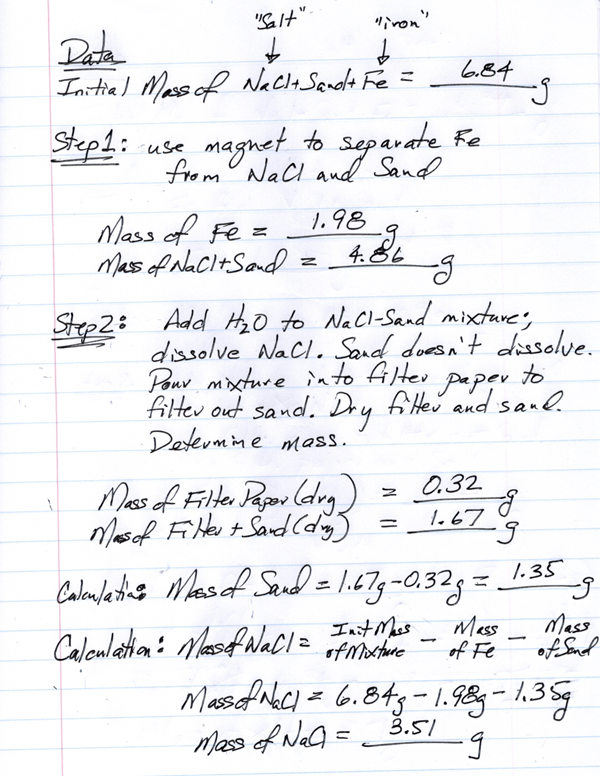 "Salt" "iron"
Data
Initial Mass of NaCl+Sand+Fe = 6.84 g
Step 1: use magnet to separate Fe
from NaCl and Sand
Mass of Fe = 1.98 g
Mass of NaCl+Sand = 4.86 g
Step 2: Add H₂O to NaCl-Sand mixture;
dissolve NaCl. Sand doesn't dissolve.
Pour mixture into filter paper to
filter out sand. Dry filter and sand.
Determine mass.
Mass of Filter Paper (dry) = 0.32 g
Mass of Filter + Sand (dry) = 1.67 g
Calculation: Mass of Sand = 1.67g - 0.32g = 1.35 g
Calculation: Mass of NaCl = Init Mass of Mixture - Mass of Fe - Mass of Sand
Mass of NaCl = 6.84g - 1.98g - 1.35g
Mass of NaCl = 3.51 g